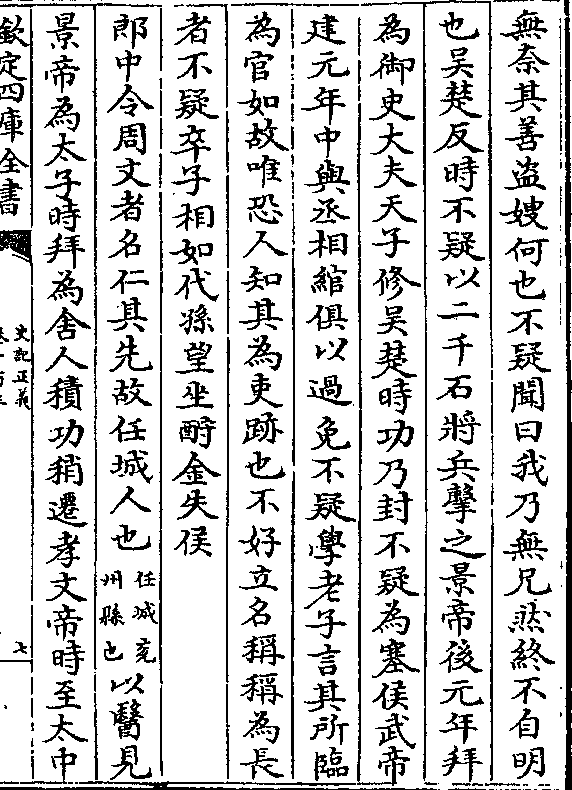 無奈其善盗嫂何也不疑聞曰我乃無兄然終不自明
也吴楚反時不疑以二千石將兵擊之景帝後元年拜
為御史大夫天子修吴楚時功乃封不疑為塞侯武帝
建元年中與丞相綰俱以過免不疑學老子言其所臨
為官如故唯恐人知其為吏跡也不好立名稱稱為長
者不疑卒子相如代孫望坐酎金失侯
郎中令周文者名仁其先故任城人也任城兖州縣也以醫見
景帝為太子時拜為舍人積功稍遷孝文帝時至太中
欽定四庫全書
史記正義
七